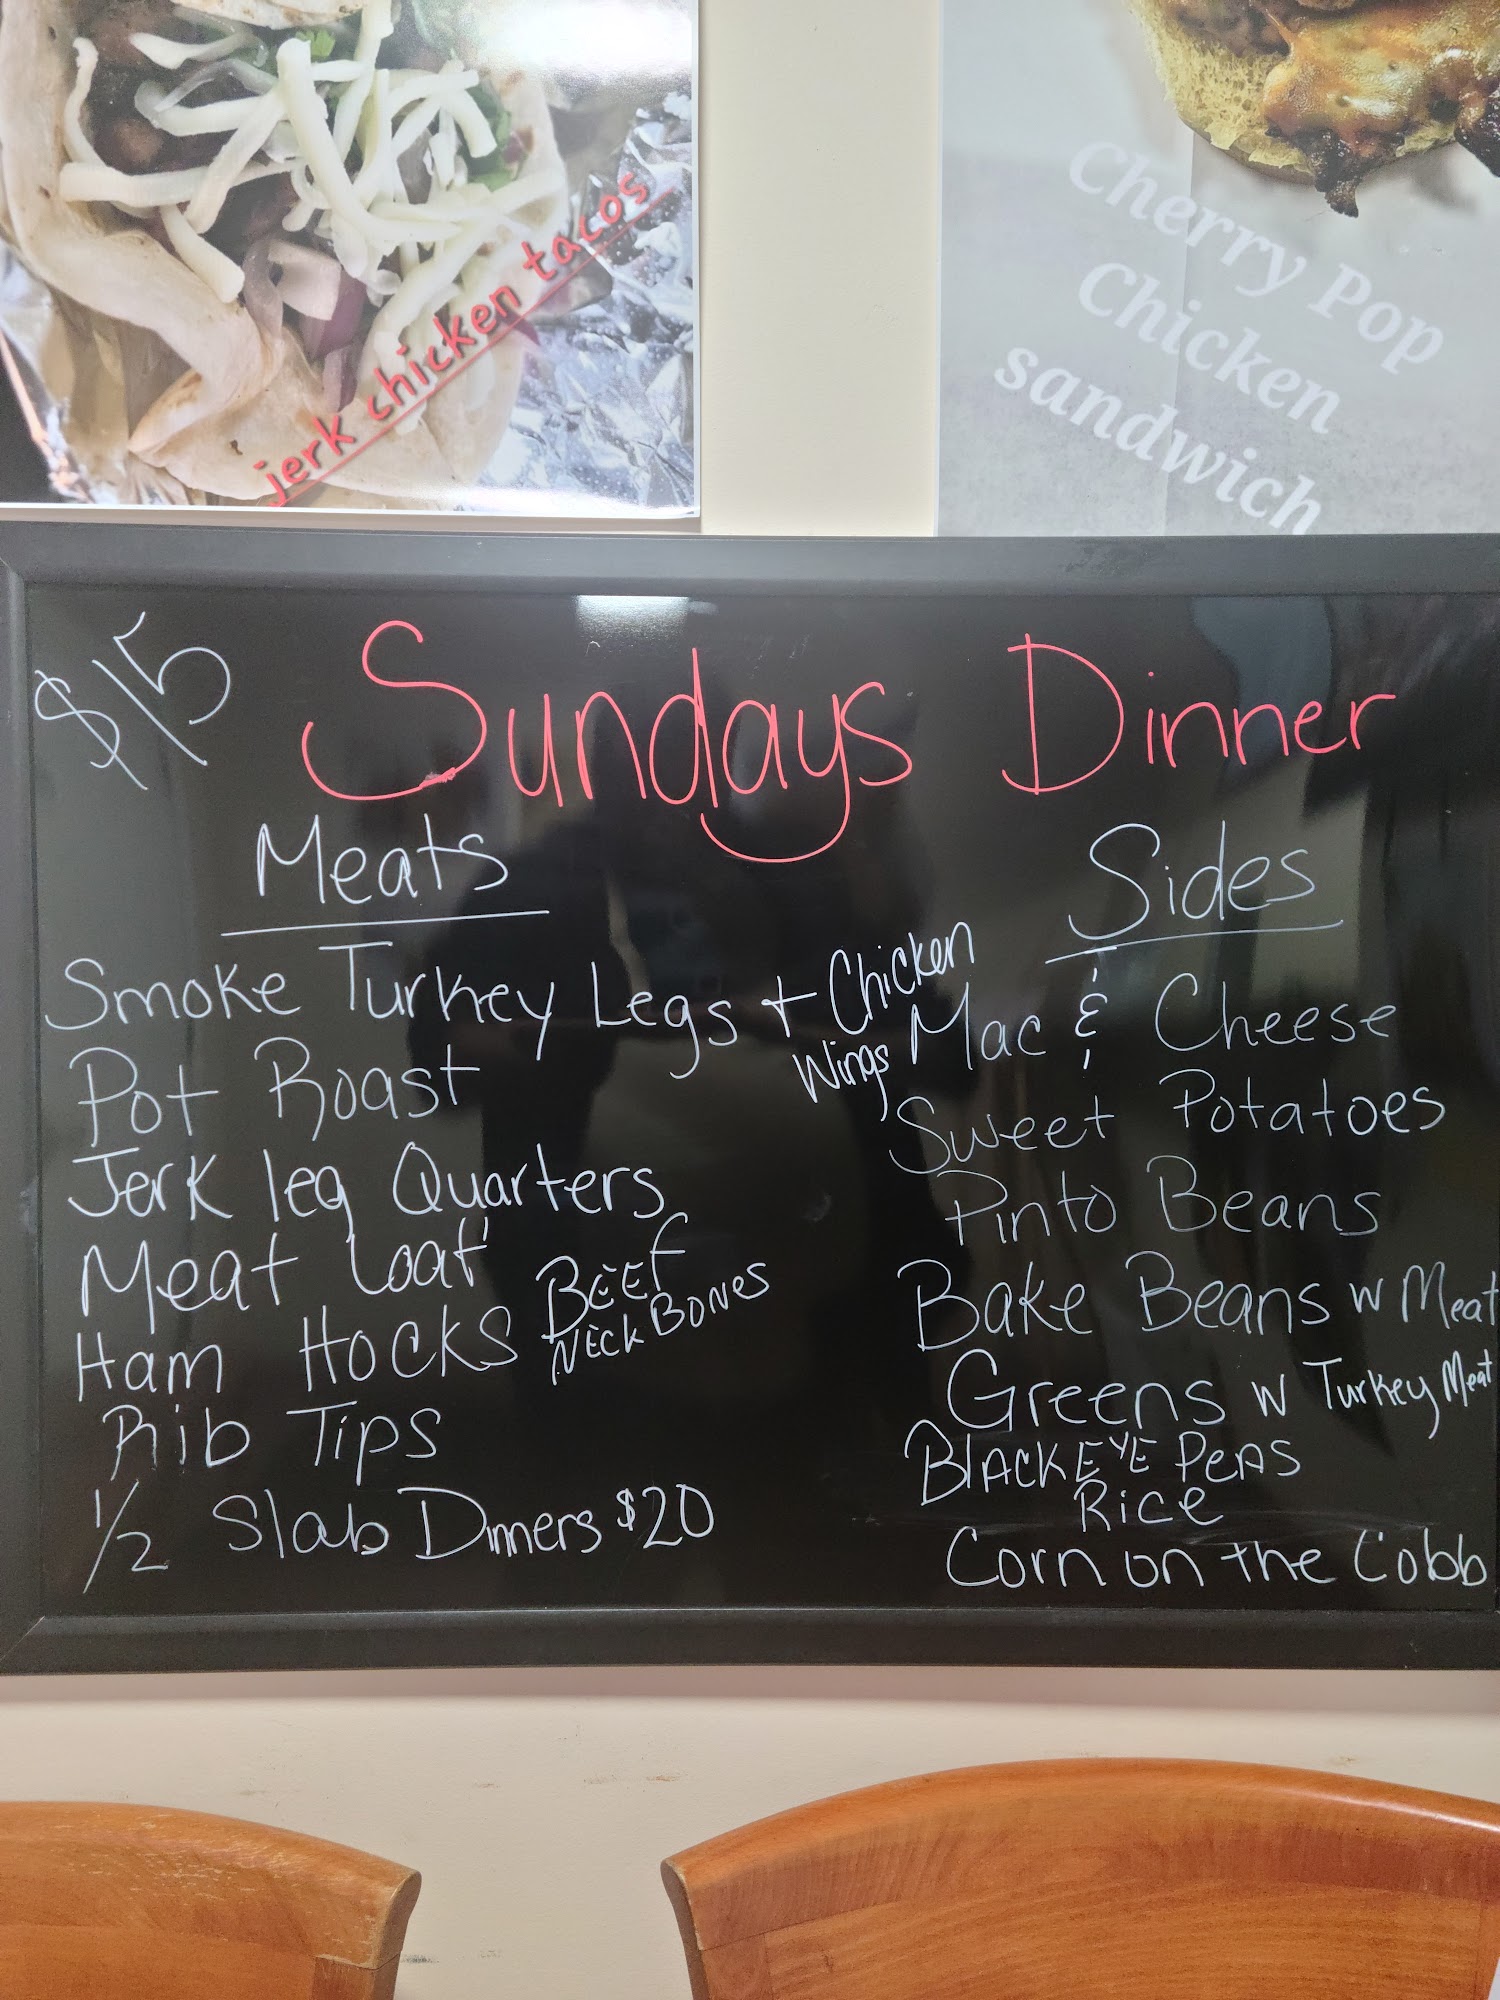 jerk chicken tacos
Cherry Pop
Chicken
sandwich
$15
Sundays Dinner
Meats
Smoke Turkey Legs + Chicken
Wings
Pot Roast
Jerk leg Quarters
Meat Loaf
Ham Hocks
BEEF
NECK BONES
Rib Tips
1/2 Slab Dinners $20
Sides
Mac & Cheese
Sweet Potatoes
Pinto Beans
Bake Beans w Meat
Greens w Turkey Meat
BLACKEYE PEAS
RICE
Corn on the Cobb